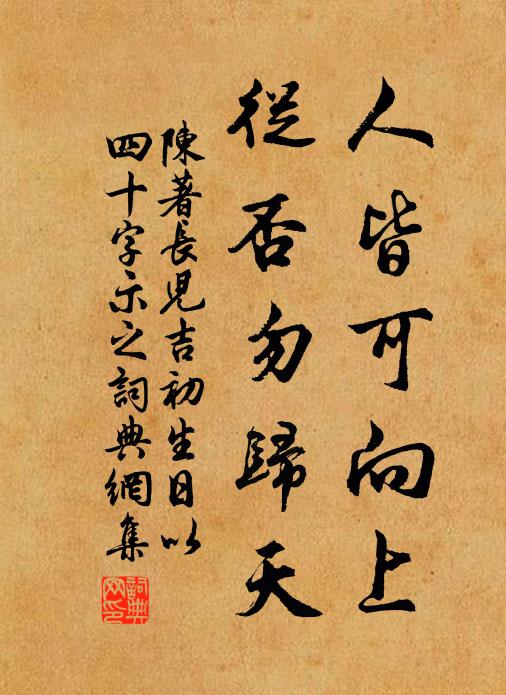 人皆可向上
從否勿歸天
陳著長児吉初生日以
四十字示之詞典網集
詞典网印